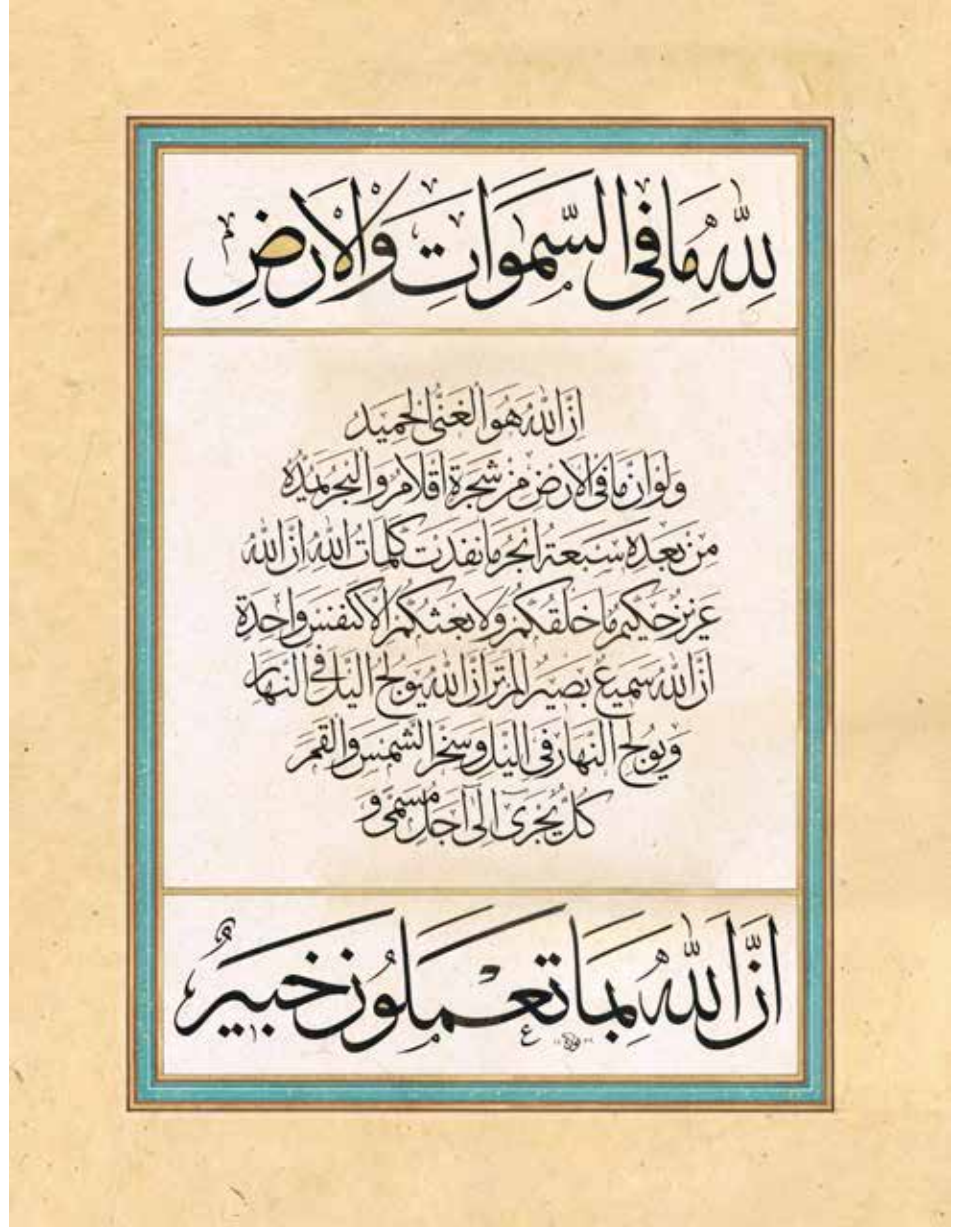 لِلّٰهِ مَا فِى السَّمٰوَاتِ وَالْاَرْضِ
اِنَّ اللّٰهَ هُوَ الْغَنِىُّ الْحَمِيدُ
وَلَوْ اَنَّ مَا فِى الْاَرْضِ مِنْ شَجَرَةٍ اَقْلَامٌ وَالْبَحْرُ يَمُدُّهُ
مِنْ بَعْدِهِ سَبْعَةُ اَبْحُرٍ مَا نَفِدَتْ كَلِمَاتُ اللّٰهِ اِنَّ اللّٰهَ
عَزِيزٌ حَكِيمٌ مَا خَلْقُكُمْ وَلَا بَعْثُكُمْ اِلَّا كَنَفْسٍ وَاحِدَةٍ
اِنَّ اللّٰهَ سَمِيعٌ بَصِيرٌ اَلَمْ تَرَ اَنَّ اللّٰهَ يُولِجُ الَّيْلَ فِى النَّهَارِ
وَيُولِجُ النَّهَارَ فِى الَّيْلِ وَسَخَّرَ الشَّمْسَ وَالْقَمَرَ
كُلٌّ يَجْرِى اِلٰى اَجَلٍ مُسَمًّى وَ
اَنَّ اللّٰهَ بِمَا تَعْمَلُونَ خَبِيرٌ